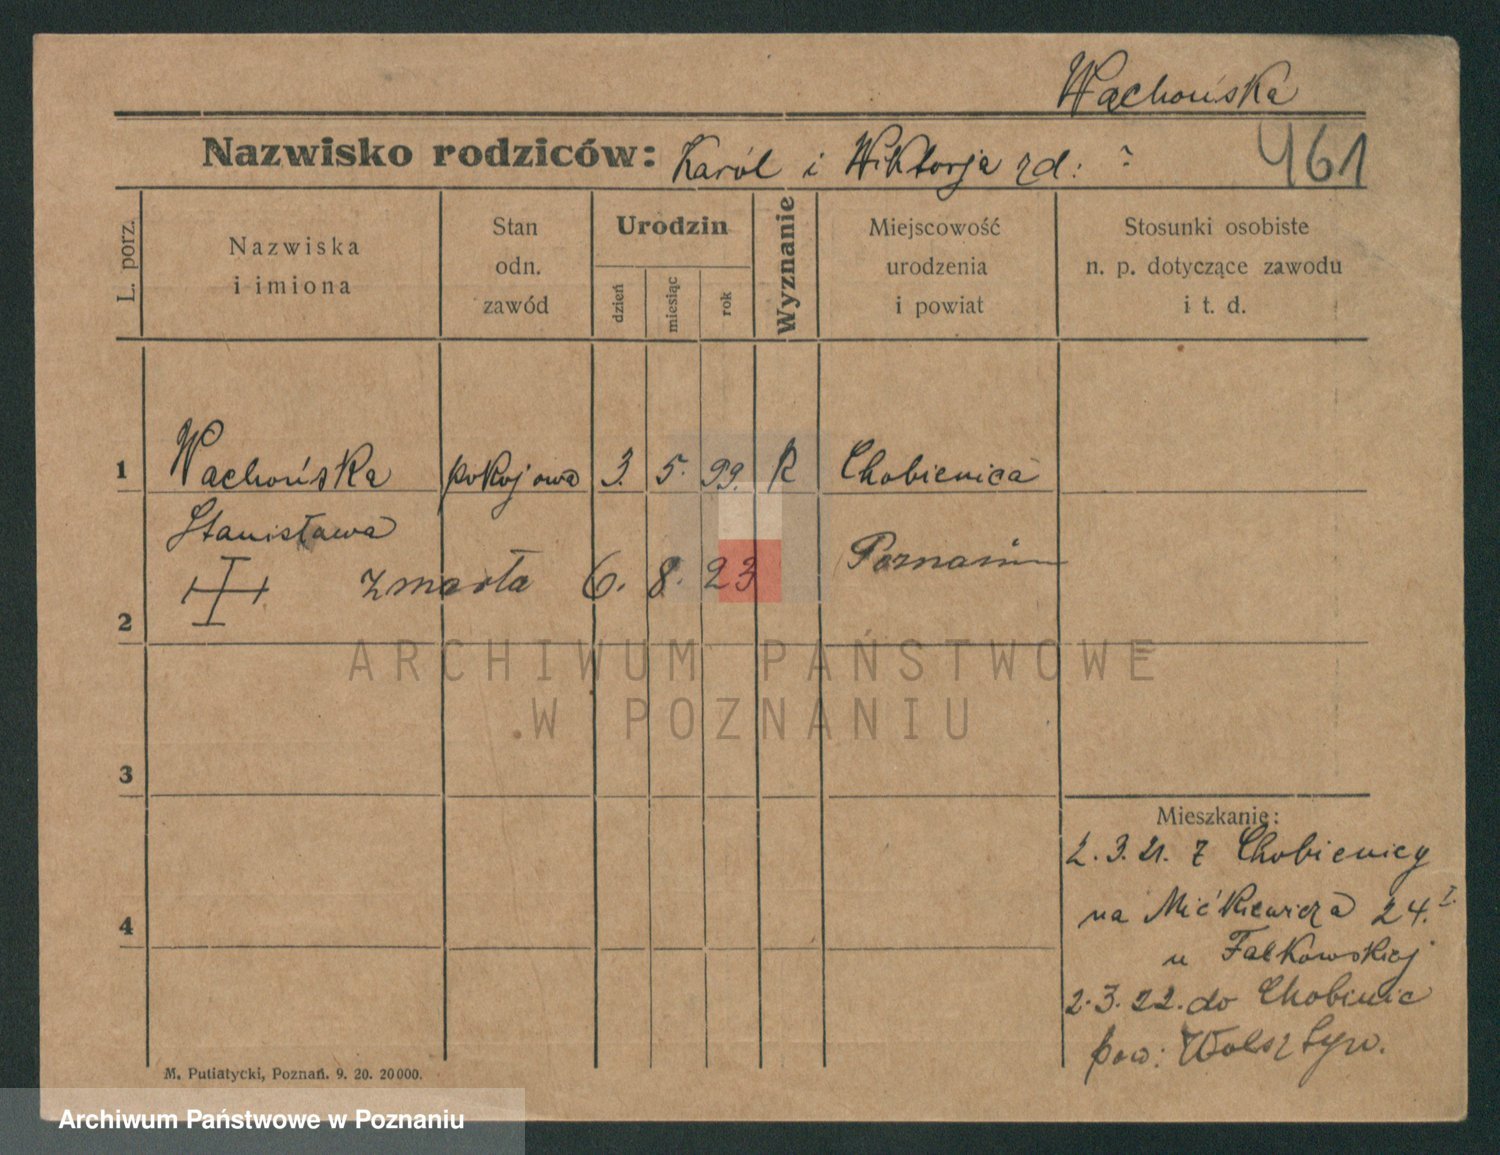 Wachońska
Nazwisko rodziców: Karól i Wiktorja zd: ?
461
L. porz.
Nazwiska
i imiona
Stan
odn.
zawód
Urodzin
dzień
miesiąc
rok
Wyznanie
Miejscowość
urodzenia
i powiat
Stosunki osobiste
n. p. dotyczące zawodu
i t. d.
1 Wachońska pokojowa 3. 5. 99. R Chobienica
Stanisława
zmarła 6. 8. 23 Poznaniu
2
ARCHIWUM PAŃSTWOWE
W POZNANIU
3
Mieszkanie:
2.3.21. z Chobienicy
na Mićkiewicza 24. I.
4
u Falkowskiej
2.3.22. do Chobienic
pow: Wolsztyn.
M. Putiatycki, Poznań. 9. 20. 20000.
Archiwum Państwowe w Poznaniu